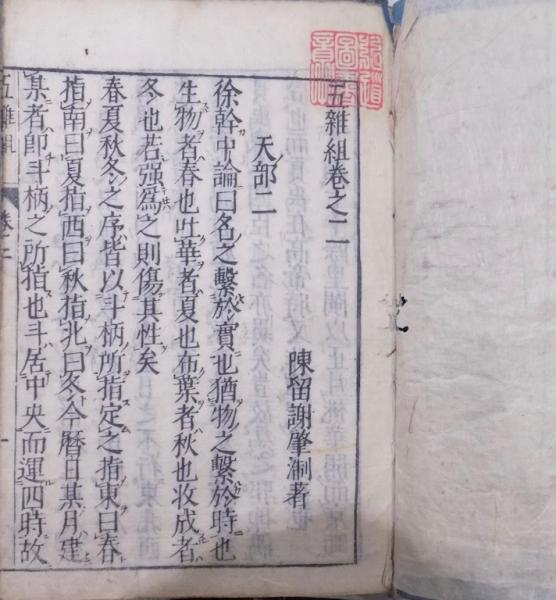 五雜組卷之二
陳留謝肇淛著
天部二
徐幹中論曰名之繫於實也猶物之繫於時也
生物者春也吐華者夏也布葉者秋也收成者
冬也若强爲之則傷其性矣
春夏秋冬之序皆以斗柄所指定之指東曰春
指南曰夏指西曰秋指北曰冬今曆日某月建
某者即斗柄之所指也斗居中央而運四時故
五雜組
卷二
一